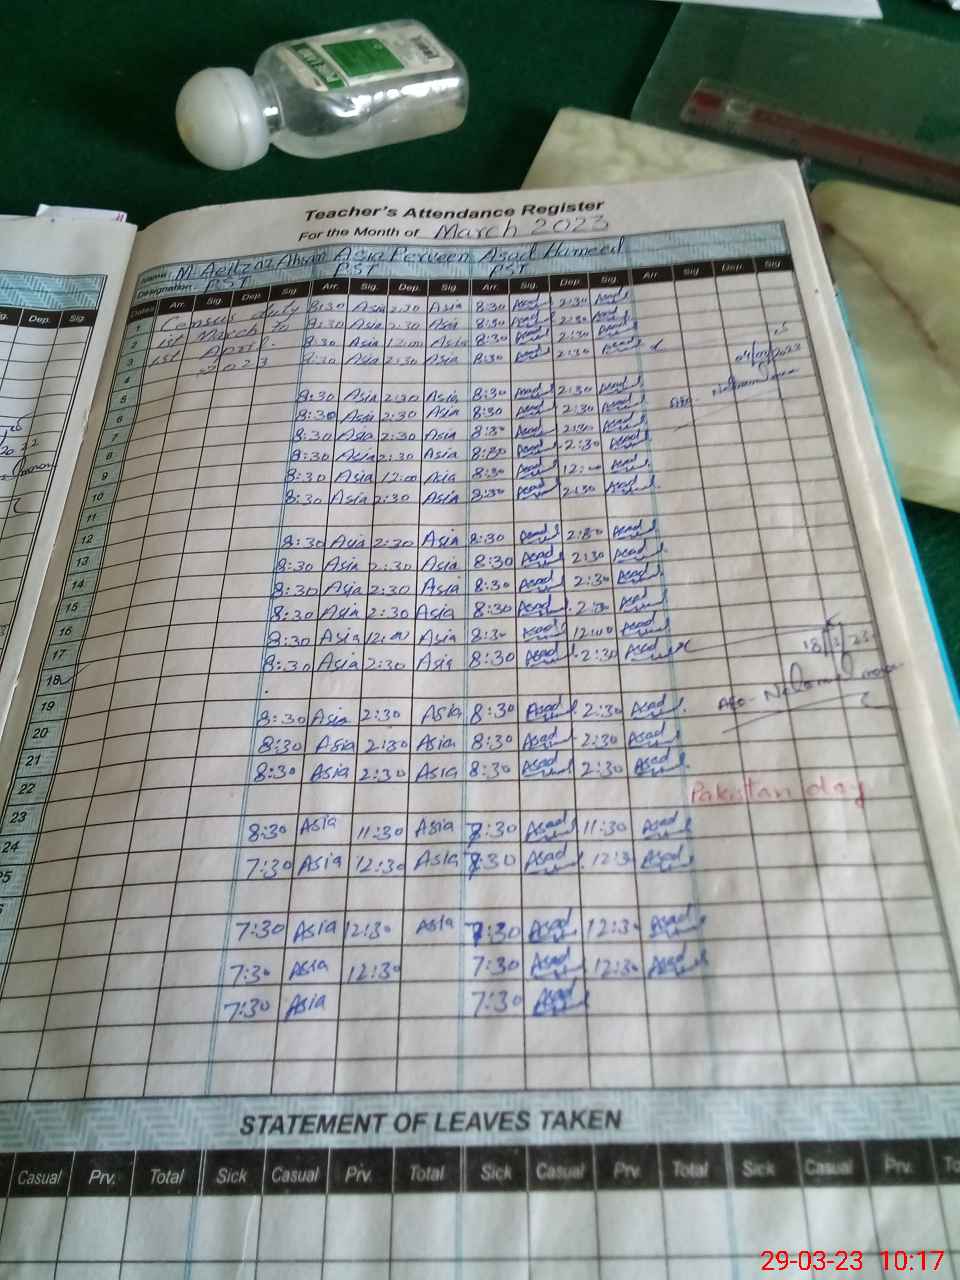 Teacher's Attendance Register
For the Month of March 2023
Name: M Aeitzaz Ahsan Asia Perveen Asad Hameed
Designation: PST PST PST
Dates Arr. Sig. Dep. Sig. Arr. Sig. Dep. Sig. Arr. Sig. Dep. Sig. Arr. Sig. Dep. Sig.
1 Census duty 8:30 Asia 2:30 Asia 8:30 Asad 2:30 Asad
2 1st March to 8:30 Asia 2:30 Asia 8:30 Asad 2:30 Asad
3 1st April 8:30 Asia 12:00 Asia 8:30 Asad 2:30 Asad
4 2023 8:30 Asia 2:30 Asia 8:30 Asad 2:30 Asad
04/03/2023
5
6 8:30 Asia 2:30 Asia 8:30 Asad 2:30 Asad
7 8:30 Asia 2:30 Asia 8:30 Asad 2:30 Asad
8 8:30 Asia 2:30 Asia 8:30 Asad 2:30 Asad
9 8:30 Asia 2:30 Asia 8:30 Asad 2:30 Asad
10 8:30 Asia 12:00 Asia 8:30 Asad 12:00 Asad
11 8:30 Asia 2:30 Asia 8:30 Asad 2:30 Asad
12
13 8:30 Asia 2:30 Asia 8:30 Asad 2:30 Asad
14 8:30 Asia 2:30 Asia 8:30 Asad 2:30 Asad
15 8:30 Asia 2:30 Asia 8:30 Asad 2:30 Asad
16 8:30 Asia 2:30 Asia 8:30 Asad 2:30 Asad
17 8:30 Asia 12:00 Asia 8:30 Asad 12:00 Asad
18 8:30 Asia 2:30 Asia 8:30 Asad 2:30 Asad
19
20 8:30 Asia 2:30 Asia 8:30 Asad 2:30 Asad
21 8:30 Asia 2:30 Asia 8:30 Asad 2:30 Asad
22 8:30 Asia 2:30 Asia 8:30 Asad 2:30 Asad
23 Pakistan day
24 8:30 Asia 11:30 Asia 8:30 Asad 11:30 Asad
25 7:30 Asia 12:30 Asia 7:30 Asad 12:30 Asad
7:30 Asia 12:30 Asia 7:30 Asad 12:30 Asad
7:30 Asia 12:30 7:30 Asad 12:30 Asad
7:30 Asia 7:30 Asad
STATEMENT OF LEAVES TAKEN
Casual Prv. Total Sick Casual Prv. Total Sick Casual Prv. Total Sick Casual Prv.
29-03-23 10:17